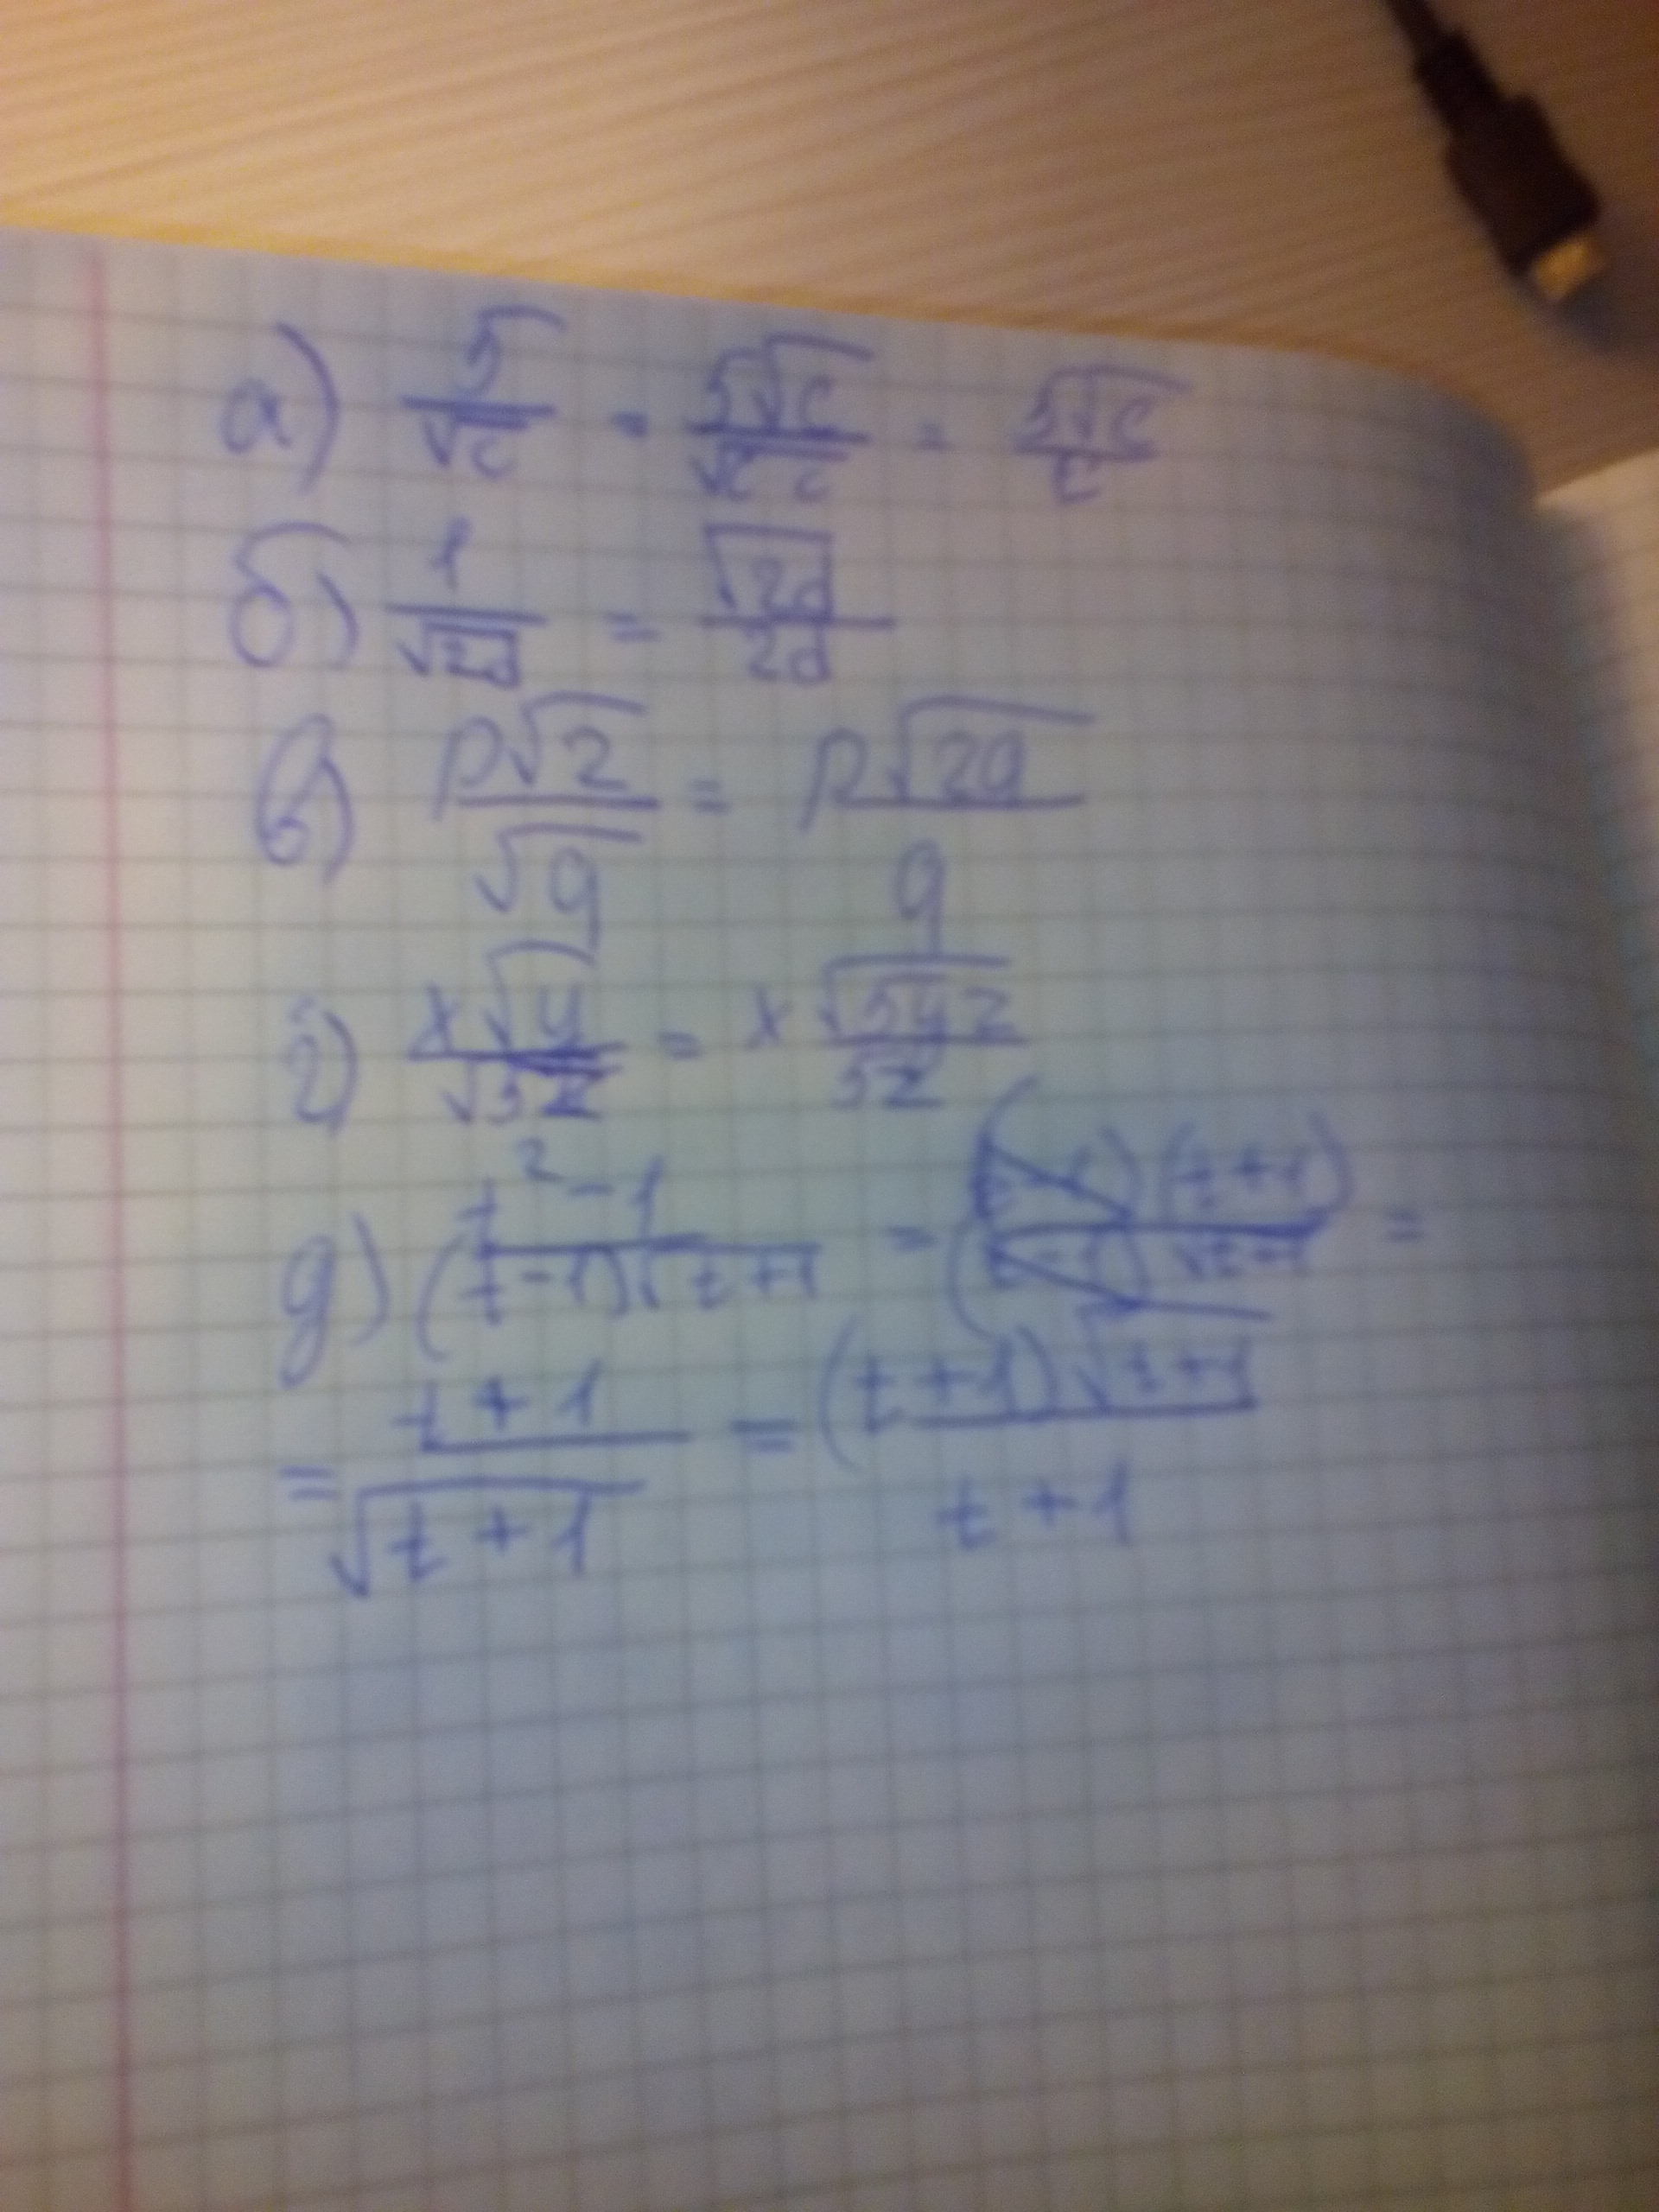 а) 5/√c = 5√c/√c c = 5√c/c
б) 1/√2d = √2d/2d
в) p√2/√q = p√2q/q
г) x√y/√5z = x √5yz/5z
д) t²-1/(t-1)√t+1 = (t-1)(t+1)/(t-1)√t+1 =
= t+1/√t+1 = (t+1)√t+1/t+1